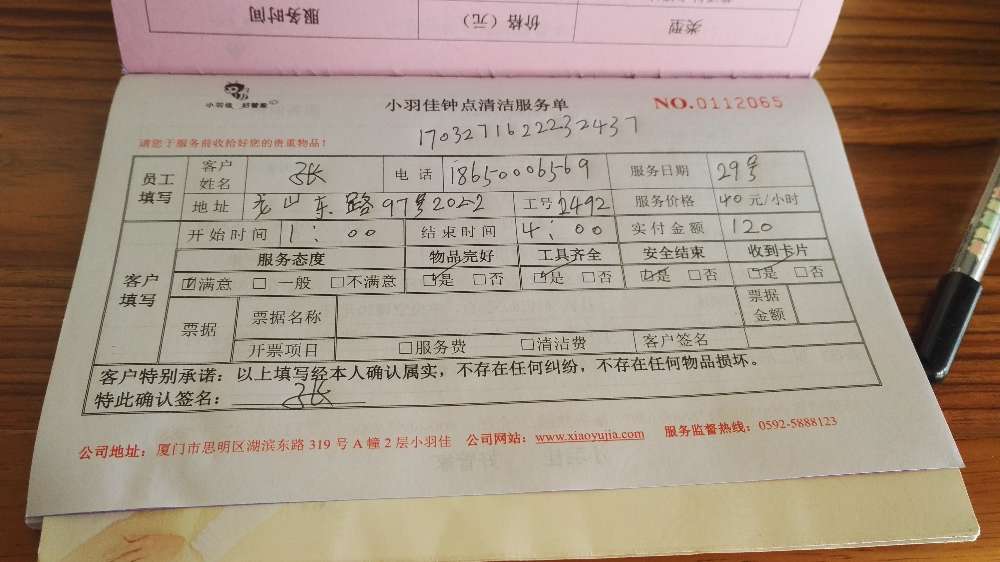 类型 价格（元） 服务时间
小羽佳 好管家
小羽佳钟点清洁服务单 NO.0112065
1703271622232437
请您于服务前收拾好您的贵重物品！
员工填写 客户姓名 张 电话 18650006569 服务日期 29号
地址 龙山东路97号2022 工号 2492 服务价格 40 元/小时
客户填写 开始时间 1：00 结束时间 4：00 实付金额 120
服务态度 物品完好 工具齐全 安全结束 收到卡片
☑满意 □一般 □不满意 ☑是 □否 ☑是 □否 ☑是 □否 ☑是 □否
票据 票据名称 票据金额
开票项目 □服务费 □清洁费 客户签名
客户特别承诺：以上填写经本人确认属实，不存在任何纠纷，不存在任何物品损坏。
特此确认签名： 张
公司地址：厦门市思明区湖滨东路 319 号 A 幢 2 层小羽佳 公司网站：www.xiaoyujia.com 服务监督热线：0592-5888123